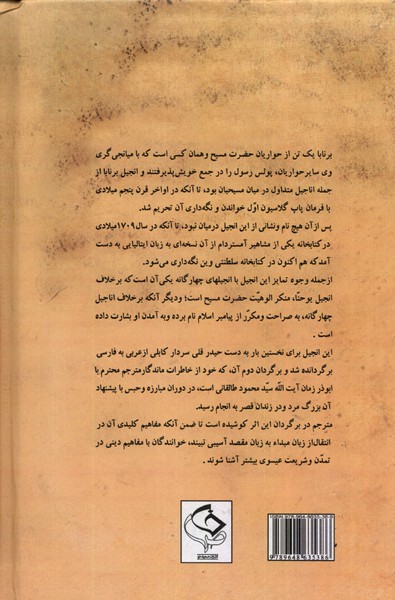 برنابا یک تن از حواریان حضرت مسیح وهمان کسی است که با میانجی‌گری
وی سایرحواریان، پولس رسول را در جمع خویش‌پذیرفتند و انجیل برنابا از
جمله اناجیل متداول در میان مسیحیان بود، تا آنکه در اواخر قرن پنجم میلادی
با فرمان پاپ گلاسیون اوّل خواندن و نگه‌داری آن تحریم شد.
پس ازآن هیچ نام ونشانی از این انجیل درمیان نبود، تا آنکه در سال۱۷۰۹میلادی
درکتابخانه یکی از مشاهیر آمستردام از آن نسخه‌ای به زبان ایتالیایی به دست
آمدکه هم اکنون در کتابخانه سلطنتی وین نگه‌داری می‌شود.
ازجمله وجوه تمایز این انجیل با انجیلهای چهارگانه یکی‌آن است که برخلاف
انجیل یوحنّا، منکر الوهیّت حضرت مسیح است؛ ودیگر آنکه برخلاف اناجیل
چهارگانه، به صراحت ومکرّر از پیامبر اسلام نام برده وبه آمدن او بشارت داده
است .
این انجیل برای نخستین بار به دست حیدر قلی سردار کابلی ازعربی به فارسی
برگردانده شد و برگردان دوم آن، که خود از خاطرات ماندگارمترجم محترم با
ابوذر زمان آیت اللّه سیّد محمود طالقانی است، در دوران مبارزه وحبس با پیشنهاد
آن بزرگ مرد ودر زندان قصر به انجام رسید.
مترجم در برگردان این اثر کوشیده است تا ضمن آنکه مفاهیم کلیدی آن در
انتقال‌از زبان مبداء به زبان مقصد آسیبی نبیند، خوانندگان با مفاهیم دینی در
تمدّن وشریعت عیسوی بیشتر آشنا شوند .
9 789648 635386